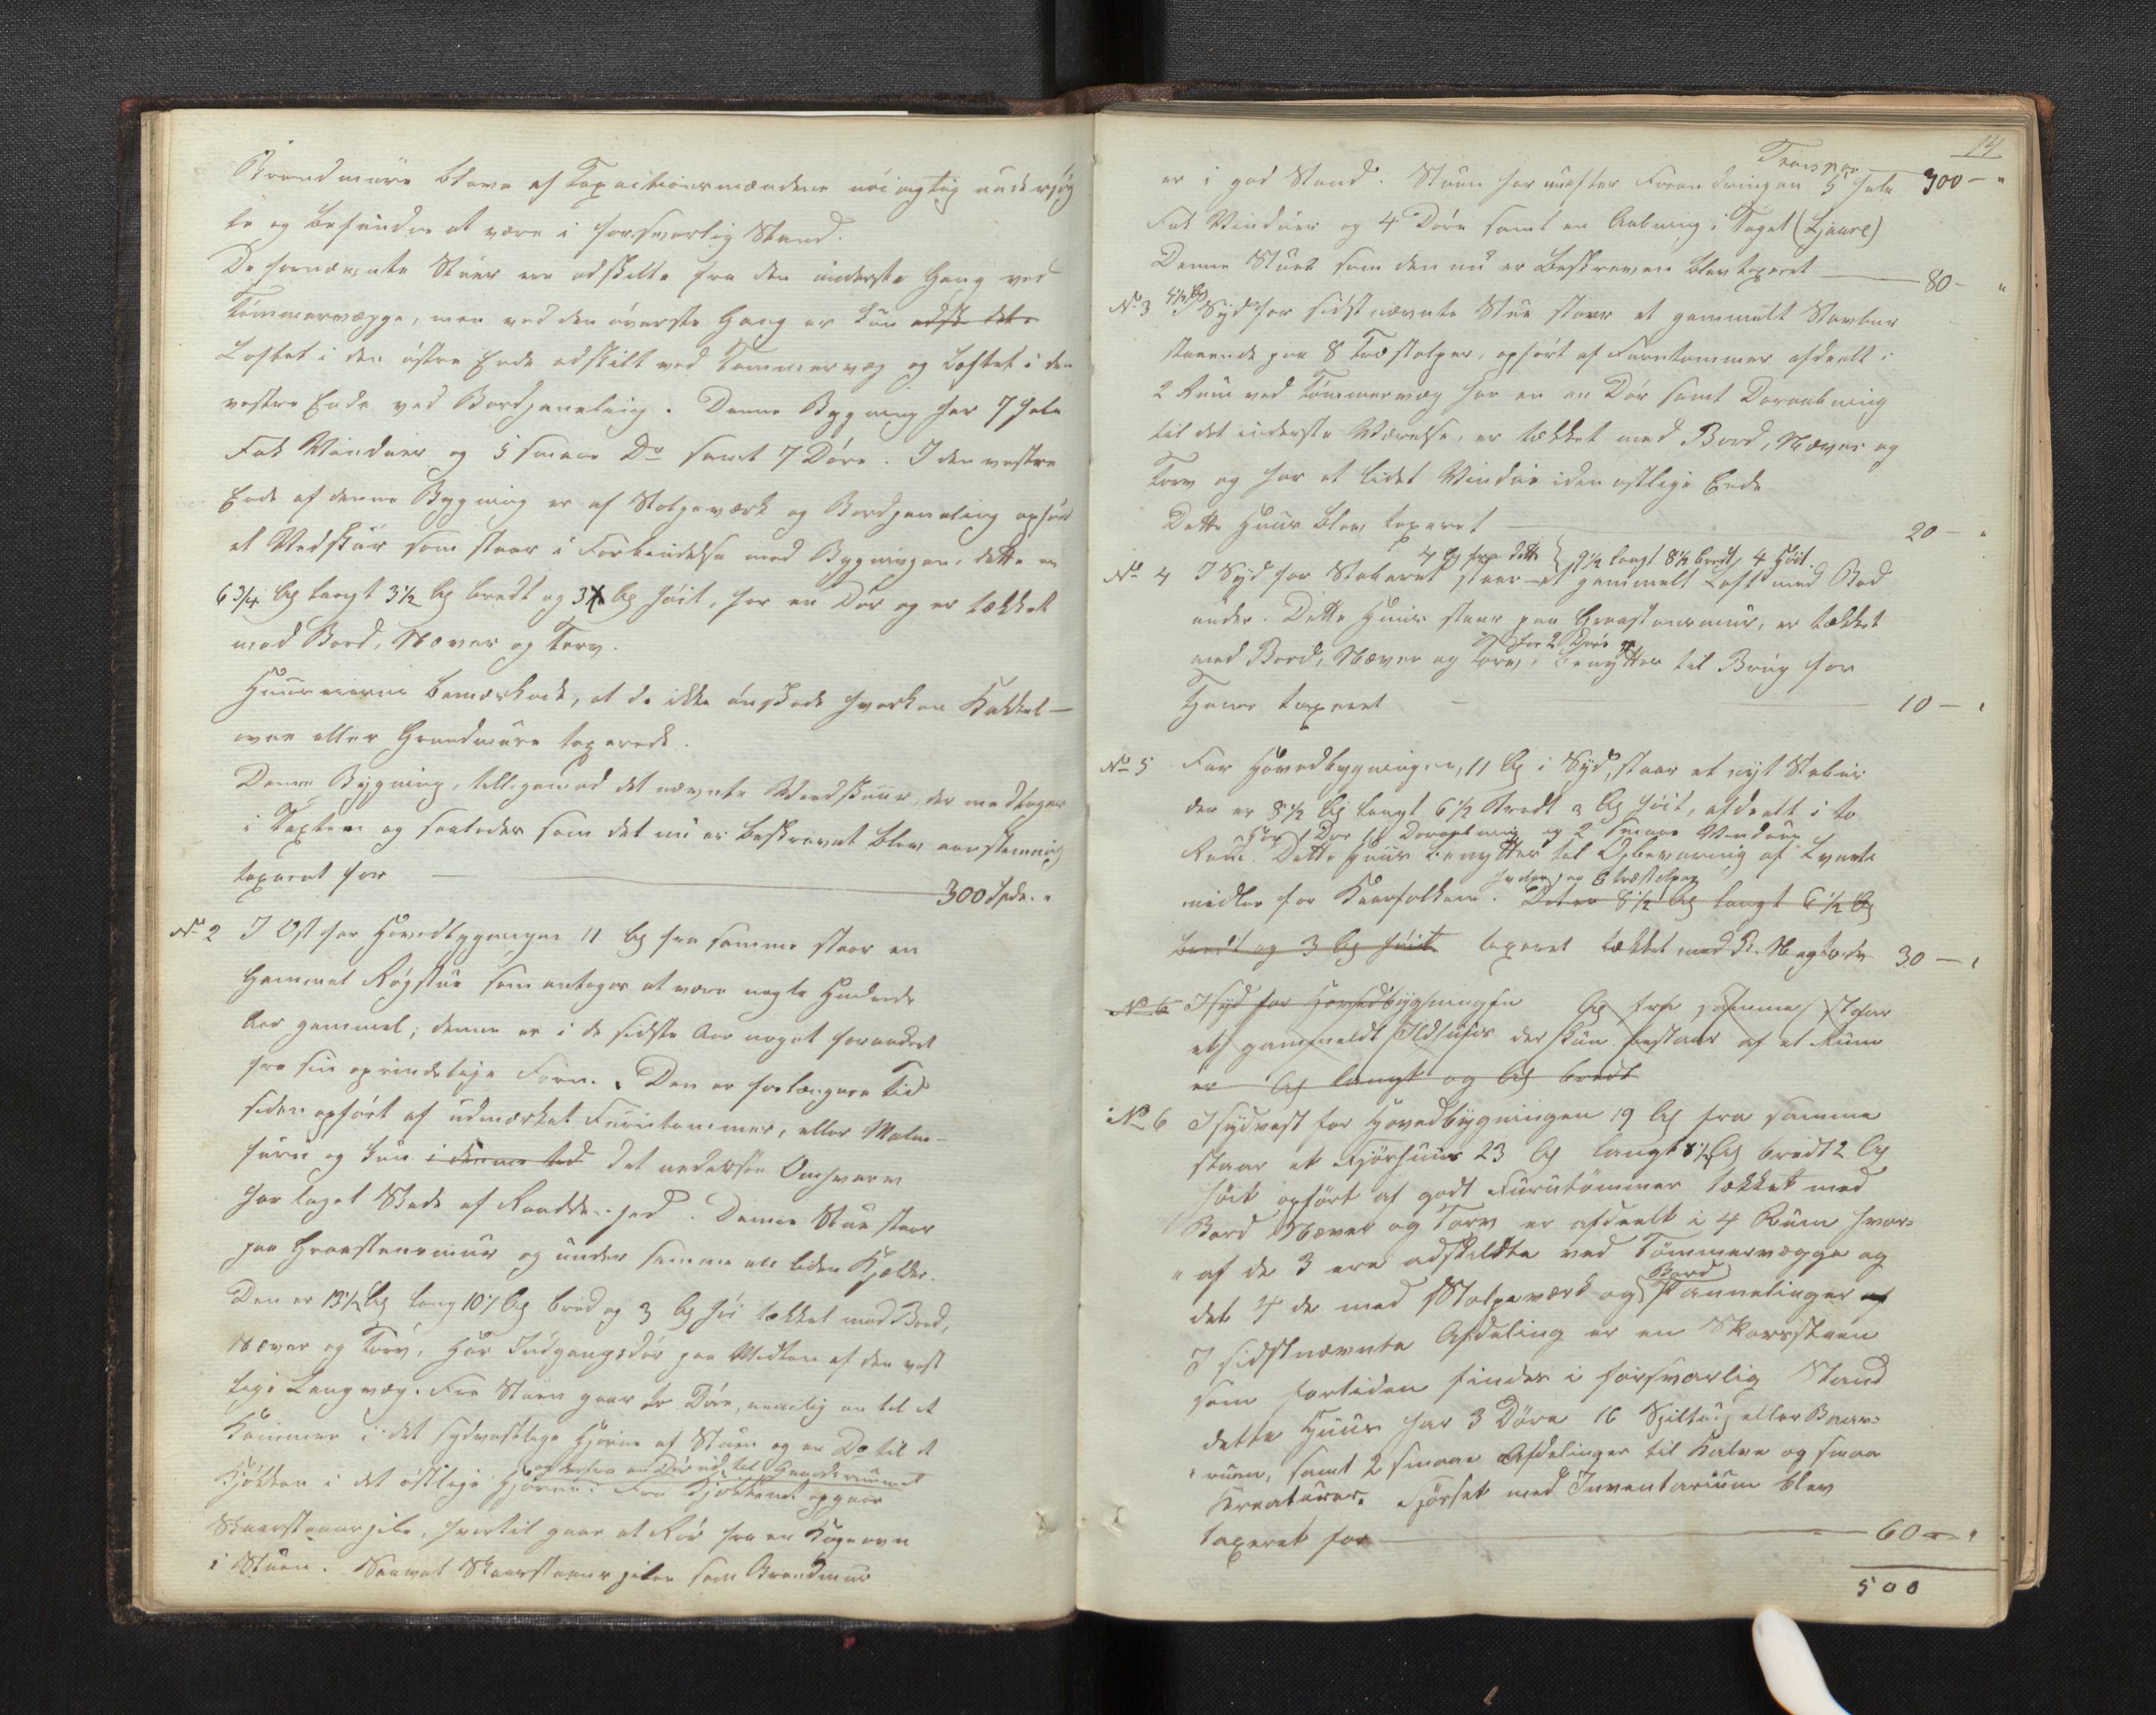 Brandmure bleve af Taxationsmændene nöiagtig undersög
te og befundne at være i forsvarlig Stand.
De fornævnte Stuer ere adskilte fra den underste Gang ved
Tömmervægge, men ved den överste Gang er kun adsk det
Loftet i den östre Ende adskilt ved Tömmervæg og Loftet i den
vestre Ende ved Bordpaneling. Denne Bygning har 7 hele
Fak Vinduer og 5 smaae Do samt 7 Döre. I den vestre
Ende af denne Bygning er af Stolpeværk og Bordpaneling opfört
et Vedskur som staar i Forbindelse med Bygningen, dette er
6 3/4 Al langt 3 1/2 Al bredt og 3 Al höit, har en Dör og er tækket
med Bord, Næver og Torv.
Huuseierne bemærkede, at de ikke önskede hverken Kakkel-
ovne eller Grundmure taxerede.
Denne Bygning, tilligemed det nævnte Vedskuur, der medtages
i Taxten og saaledes som det nu er beskrevet blev eenstemmig
taxeret for — 300 Spd. "
No 2 I Öst for Hovedbygningen 11 Al fra samme staar en
Gammel Rögstue som antages at være nogle Hundrede
Aar gammel; denne er i de sidste Aar noget forandret
fra sin oprindelige Form. Den er for længere Tid
siden opfört af udmærket Furutömmer, eller Malm-
furu og kun i denne tid det nederste Omhvarv
har taget Skade af Raaddenhed. Denne Stue staar
paa Graasteensmuur og under samme en liden Kjelder.
Den er 13 1/2 Al lang 10 1/2 Al bred og 3 Al höi tækket med Bord,
Næver og Torv, har Indgangsdör paa Midten af den vest
lige Langvæg. Fra Stuen gaar to Döre, nemlig en til et
Kammer i det sydvestlige Hjörne af Stuen og en Do til et
og derfra en Dör ud til Gaardsrummet
Kjökken i det östlige Hjörne. Fra Kjökkenet opgaar
Skorsteenspibe, hvortil gaar et Rör fra en Kogeovn
i Stuen. Saavel Skorsteenspiben som Brandmur
14
Transpor
er i god Stand. Stuen har nuefter Forandringen 5 hele 300 — "
Fak Vinduer og 4 Döre samt en Aabning i Taget (Ljaare)
Denne Stue som den nu er beskreven blev taxeret — 80 — "
4 1/2 Al
No 3 I Syd for sidstnævnte Stue staar et gammelt Stabur
staaende paa 8 Træstolper, opfört af Furutömmer afdeelt i
2 Rum ved Tömmervæg har en en Dör samt Döraabning
til det inderste Værelse, er tækket med Bord, Næver og
Torv og har et lidet Vindue i den östlige Ende
Dette Huus blev taxeret — 20 — "
7 Al fra dette 9 1/2 langt 8 1/2 bredt, 4 Höit.
No 4 I Syd for Staburet staar et gammelt Loft med Bod
under. Dette Huus staar paa Graasteensmuur, er tækket
har 2 Döre og
med Bord, Næver og Torv, benyttes til Brug for
Tjenere taxeret — 10 — "
No 5 For Hovedbygningen, 11 Al i Syd, staar et nyt Stabur
der er 8 1/2 Al langt 6 1/2 bredt 3 Al höit, afdeelt i to
har 1 Dör 1 Döraabning og 2 smaae Vinduer
Rum. Dette Huus benyttes til Opbevaring af Levnets
hviler paa 6 træstolper
midler for Kaarfolkene. Det er 8 1/2 Al langt 6 1/2 Al
bredt og 3 Al höit taxeret tækket med B. N og torv 30 — "
No 6 I syd for Hovedbygningen Al fra samme staar
et gammeldt Ildhuus der kun bestaar af et Rum
er Al langt og Al bredt
No 6 I sydvest for Hovedbygningen 19 Al fra samme
staar et Fjörhuus 23 Al langt 8 1/2 Al bredt 2 Al
höit opfört af godt Furutömmer tækket med
Bord Næver og Torv er afdeelt i 4 Rum hvor-
" af de 3 ere adskildte ved Tömmervægge og
Bord
det 4 de med Stolpeværk og pannelinger
I sidstnævnte Afdeling er en Skorsteen
som fortiden findes i forsvarlig Stand
dette Huus har 3 Döre 16 Spiltaug eller Baas-
" rum, samt 2 smaae Afdelinger til Kalve og smaa
Kreaturer. Fjöset med Inventarium blev
taxeret for — 60 — "
500